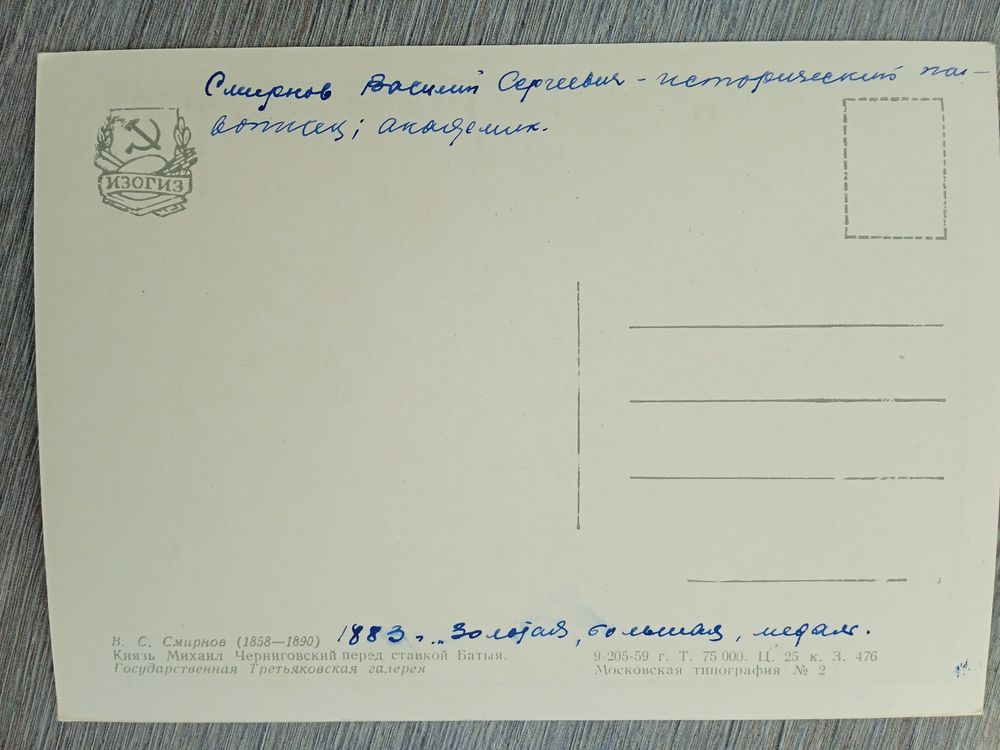 Смирнов Василий Сергеевич - исторический жи-
вописец; академик.
ИЗОГИЗ
В. С. Смирнов (1858—1890) 1883 г. Золотая, большая, медаль.
Князь Михаил Черниговский перед ставкой Батыя.
Государственная Третьяковская галерея
9-205-59 г. Т. 75 000. Ц. 25 к. З. 476
Московская типография № 2